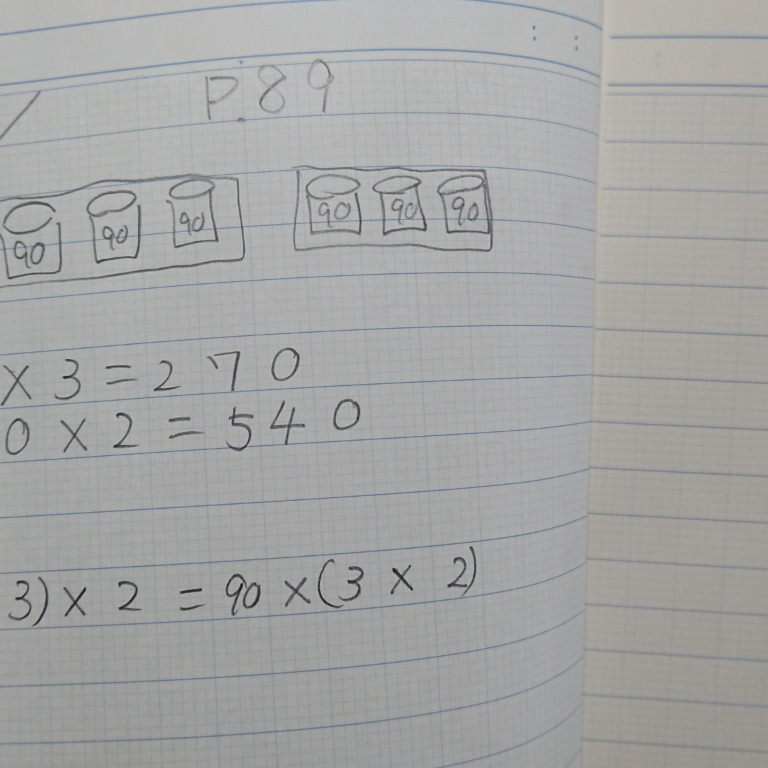 P.89
90 90 90 90 90 90
× 3 = 270
0 × 2 = 540
3) × 2 = 90 × (3 × 2)